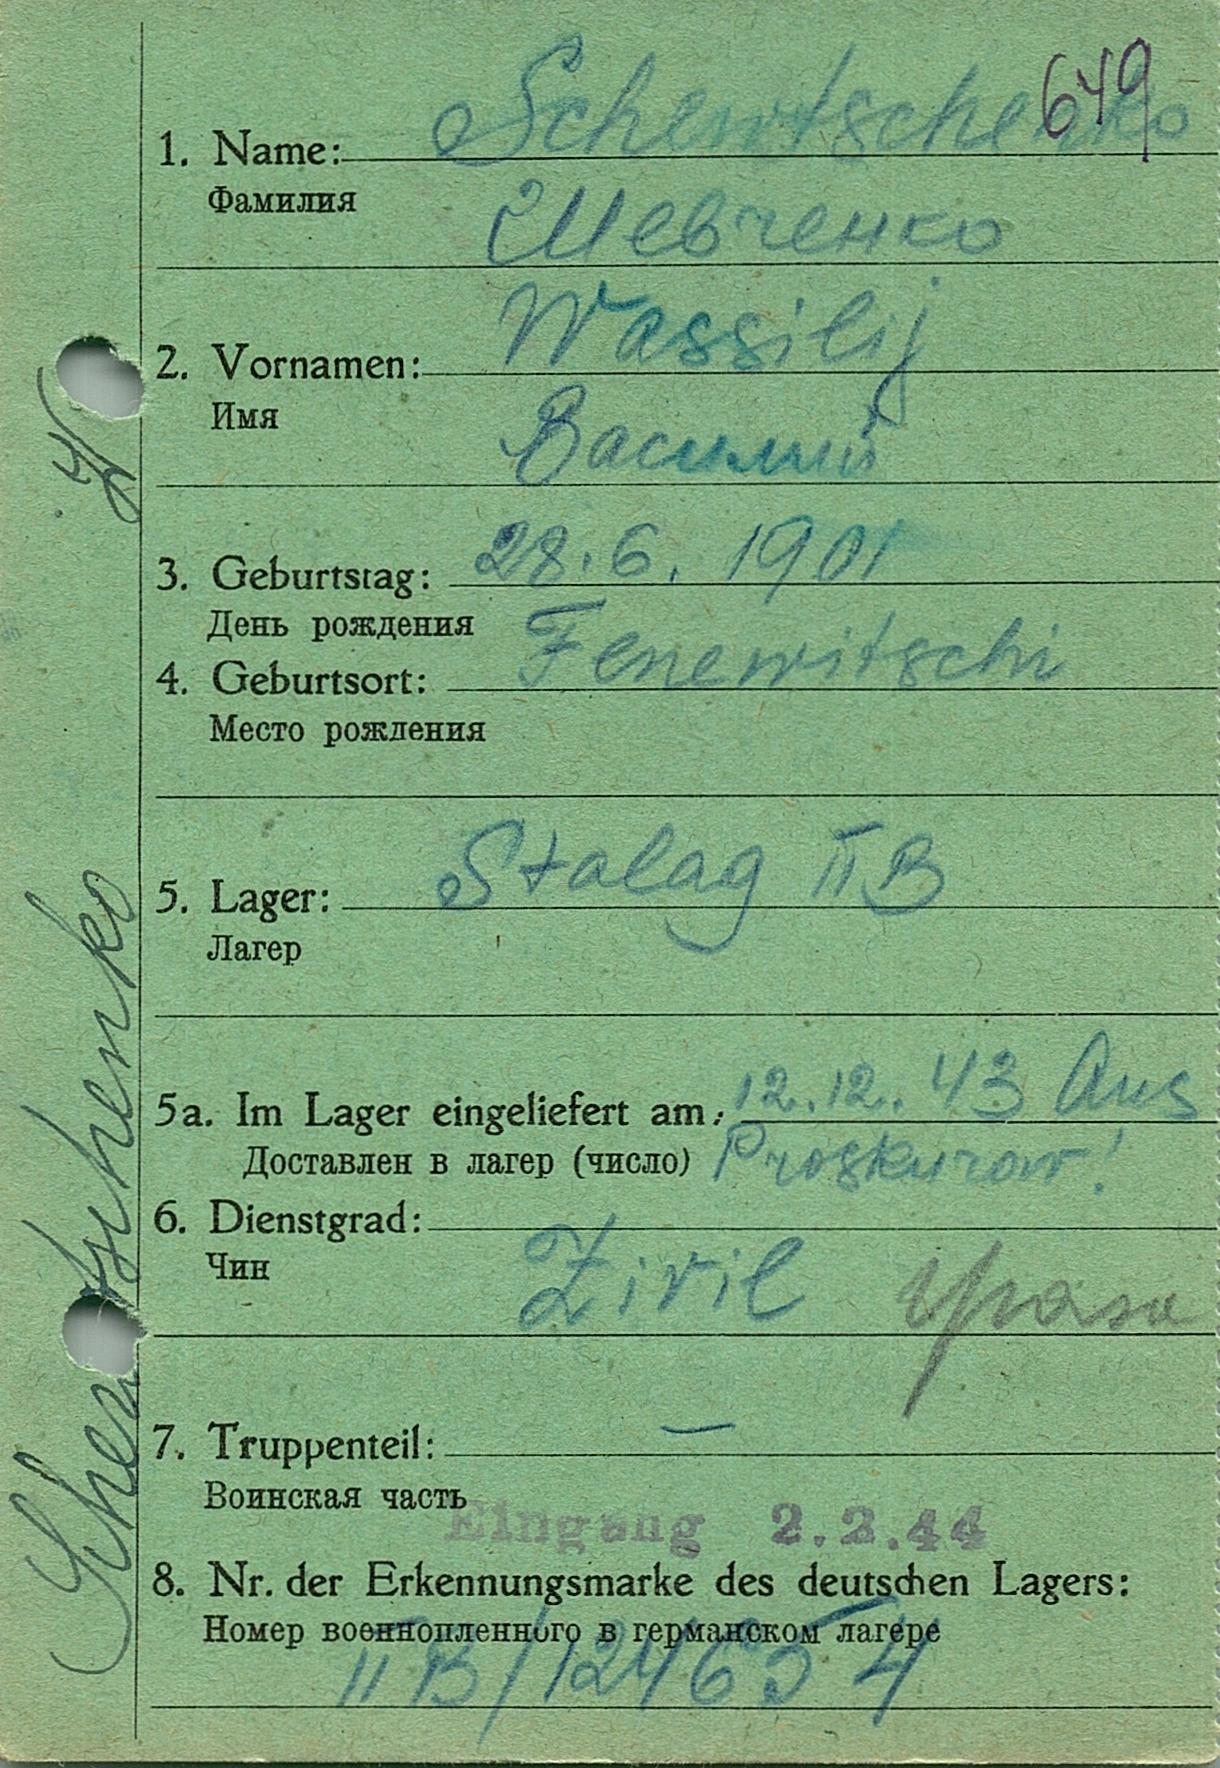 649
1. Name: Schewtschenko
Фамилия
Шевченко
Wassilij
2. Vornamen:
Имя
Василий
3. Geburtstag: 28.6.1901
День рождения
4. Geburtsort: Fenewitschi
Место рождения
5. Lager: Stalag II B
Лагер
5a. Im Lager eingeliefert am: 12.12.43 Aus
Доставлен в лагер (число) Proskurow!
6. Dienstgrad:
Чин
Zivil
7. Truppenteil: —
Воинская часть
Eingang 2.2.44
8. Nr. der Erkennungsmarke des deutschen Lagers:
Номер военнопленного в германском лагере
II B/124654
Schewtschenko W.